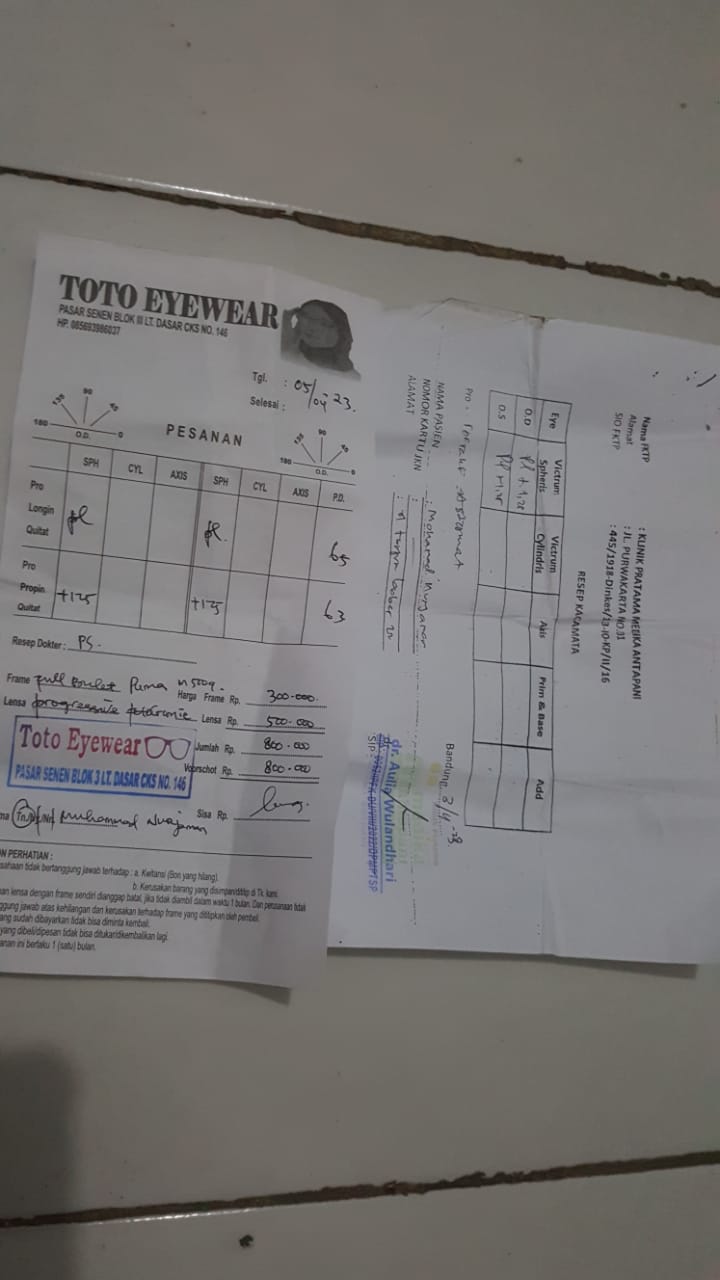 TOTO EYEWEAR
PASAR SENEN BLOK III LT. DASAR CKS NO. 146
HP. 085693986037
Tgl. : 05/04 23.
Selesai :
90
150 45
180 O.D. 0
PESANAN
90
150 45
180 O.D. 0
SPH CYL AXIS SPH CYL AXIS P.D.
Pro Longin Quitat pl pl. 65
Pro Propin Quitat +125 +125 63
Resep Dokter : PS.
Frame full Puma Harga Frame Rp. 300.000.
Lensa progressive Lensa Rp. 500.000
Jumlah Rp. 800.000
Voorschot Rp. 800.000
Sisa Rp.
Toto Eyewear
PASAR SENEN BLOK 3 LT. DASAR CKS NO. 146
Tn
N PERHATIAN :
sahaan tidak bertanggung jawab terhadap : a. Kwitansi (Bon yang hilang).
b. Kerusakan barang yang disimpan/dititip di Tk. kami.
an lensa dengan frame sendiri dianggap batal, jika tidak diambil dalam waktu 1 bulan. Dan perusanaan tidak
ggung jawab atas kehilangan dan kerusakan terhadap frame yang dititipkan oleh pembeli.
ang sudah dibayarkan tidak bisa diminta kembali.
yang dibeli/dipesan tidak bisa ditukar/dikembalikan lagi.
anan ini berlaku 1 (satu) bulan.
Nama FKTP : KLINIK PRATAMA MEDIKA ANTAPANI
Alamat : JL. PURWAKARTA NO.31
SIO FKTP : 445/1918-Dinkes/13-IO-KP/II/16
RESEP KACAMATA
Eye Victrum Spheris Victrum Cylindris Axis Prim & Base Add
O.D
O.S
Pro :
NAMA PASIEN : Mohamad
NOMOR KARTU JKN :
ALAMAT :
Bandung, 3/4-23
dr. Aulia Wulandhari